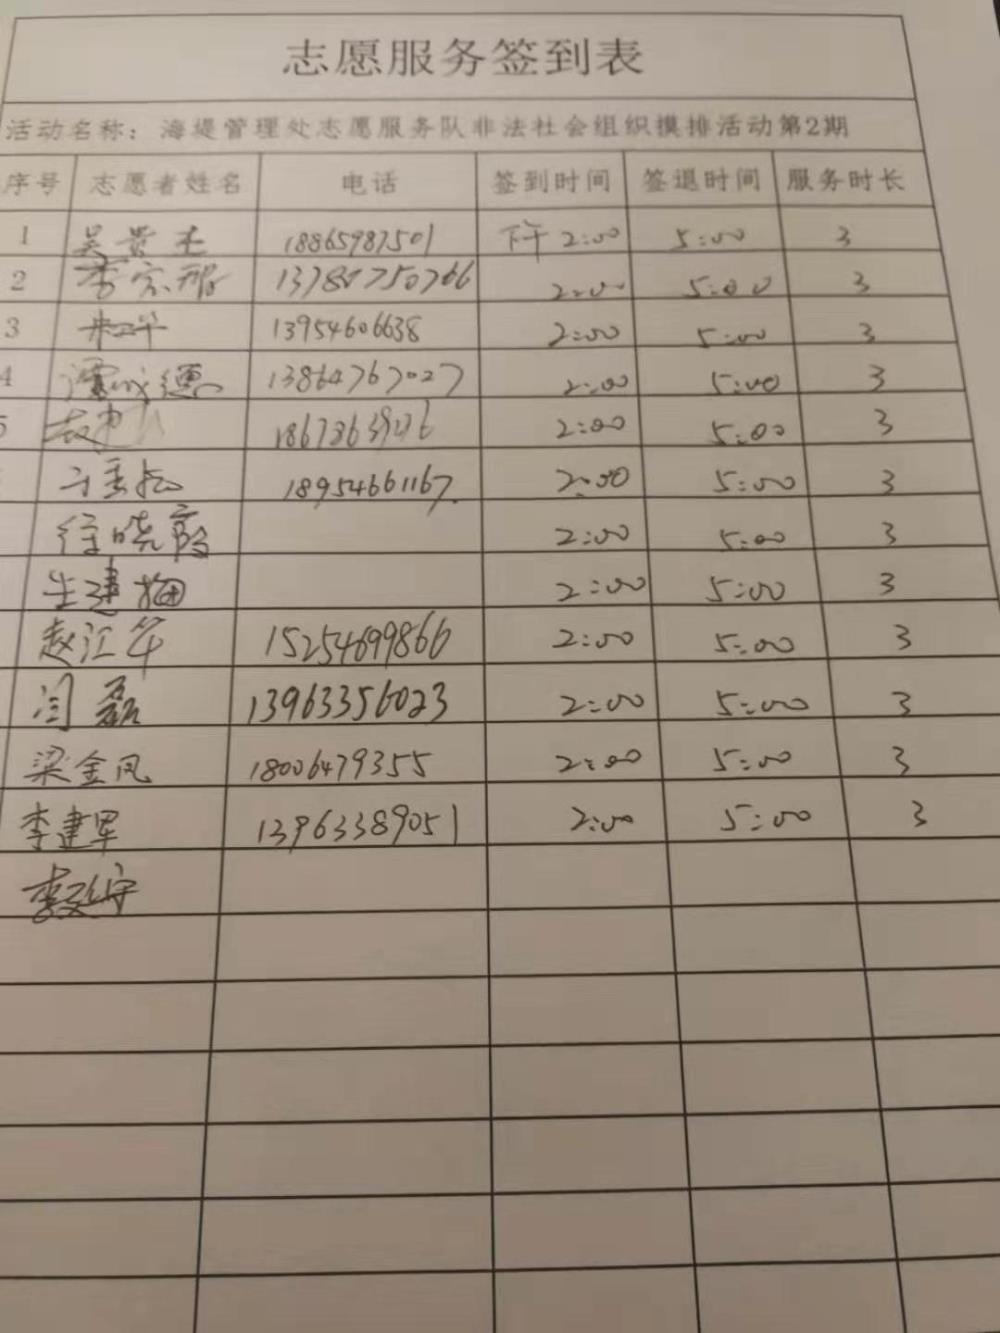 志愿服务签到表
活动名称：海堤管理处志愿服务队非法社会组织摸排活动第2期
序号 志愿者姓名 电话 签到时间 签退时间 服务时长
1 吴贵杰 18865987501 下午2:00 5:00 3
2 李宗 2:00 5:00 3
3 13954606638 2:00 5:00 3
4 谭 德 13864767027 2:00 5:00 3
5 2:00 5:00 3
18954661167. 2:00 5:00 3
徐晓霞 2:00 5:00 3
生建梅 2:00 5:00 3
赵汇华 15254699866 2:00 5:00 3
闫磊 13963356023 2:00 5:00 3
梁金凤 18006479355 2:00 5:00 3
李建军 13963389051 2:00 5:00 3
李